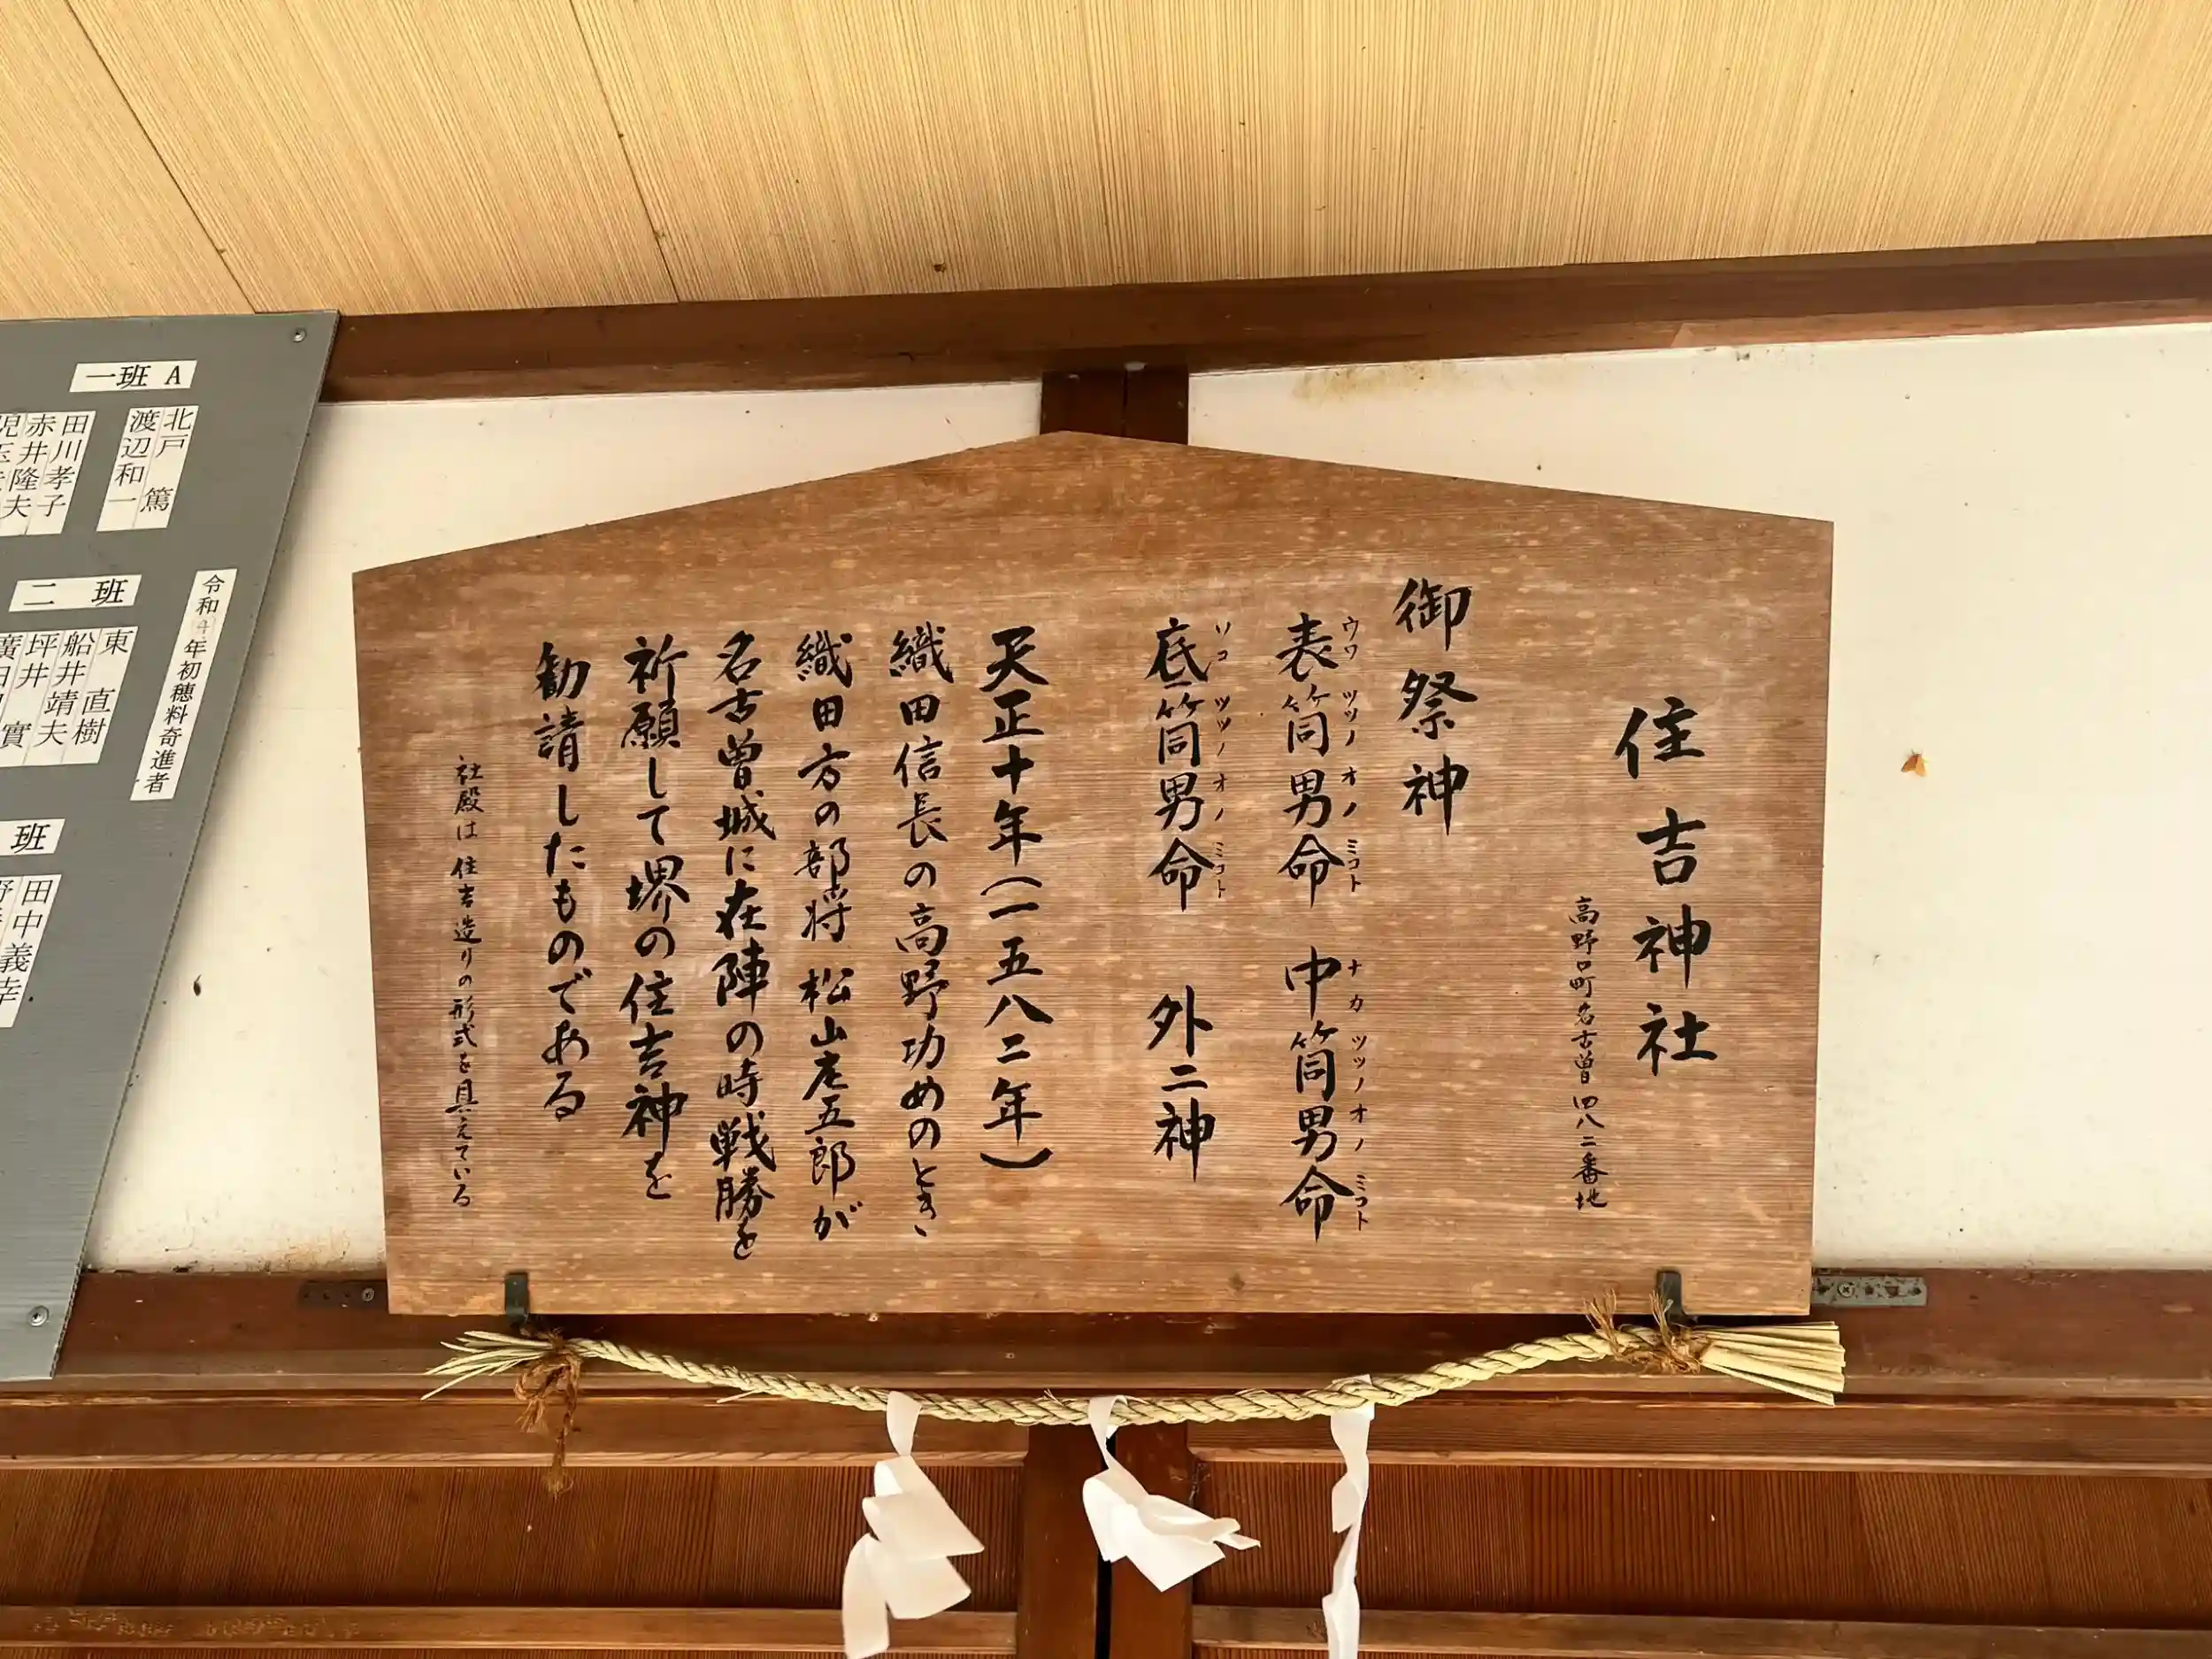 住吉神社
高野口町名古曽四八二番地
御祭神
表筒男命 中筒男命
ウワ ツツノ オノ ミコト ナカ ツツノ オノ ミコト
底筒男命 外二神
ソコ ツツノ オノ ミコト
天正十年(一五八二年)
織田信長の高野功めのとき、
織田方の部将 松山庄五郎が
名古曽城に在陣の時戦勝を
祈願して堺の住吉神を
勧請したものである
社殿は住吉造りの形式を具えている
令和4年初穂料奇進者
一班 A
北戸 篤
渡辺和一
田川孝子
赤井隆夫
二 班
東 直樹
船井靖夫
坪井 實
班
田中義幸